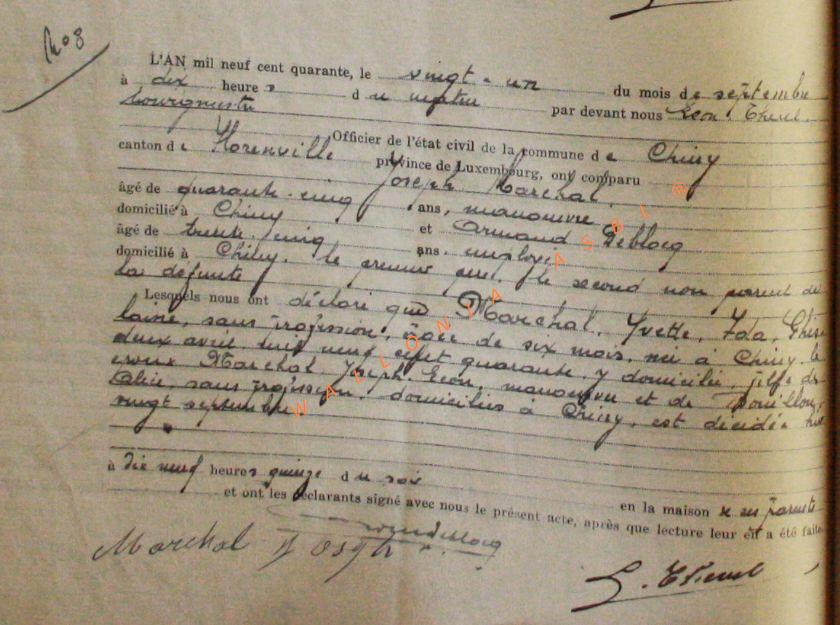 No 8
L'AN mil neuf cent quarante, le vingt-un du mois de septembre
à dix heures du matin par devant nous Léon
bourgmestre
Officier de l'état civil de la commune de Chiny
canton de Florenville province de Luxembourg, ont comparu
Joseph Marchal,
âgé de quarante-cinq ans, manoeuvre
domicilié à Chiny et Armand Deblocq
âgé de trente-cinq ans employé
domicilié à Chiny, le premier père, le second non parent de
la défunte
Lesquels nous ont déclaré que Marchal, Yvette, Ida,
laine, sans profession, âgée de six mois, née à Chiny le
deux avril mil neuf cent quarante, y domiciliée, fille des
époux Marchal Joseph Léon, manoeuvre et de
Alice, sans profession, domiciliés à Chiny, est décédée
vingt septembre
à dix neuf heures quinze du soir
en la maison de ses parents
et ont les déclarants signé avec nous le présent acte, après que lecture leur en a été faite
Marchal Joseph Deblocq
WALLONIA ASBL ©